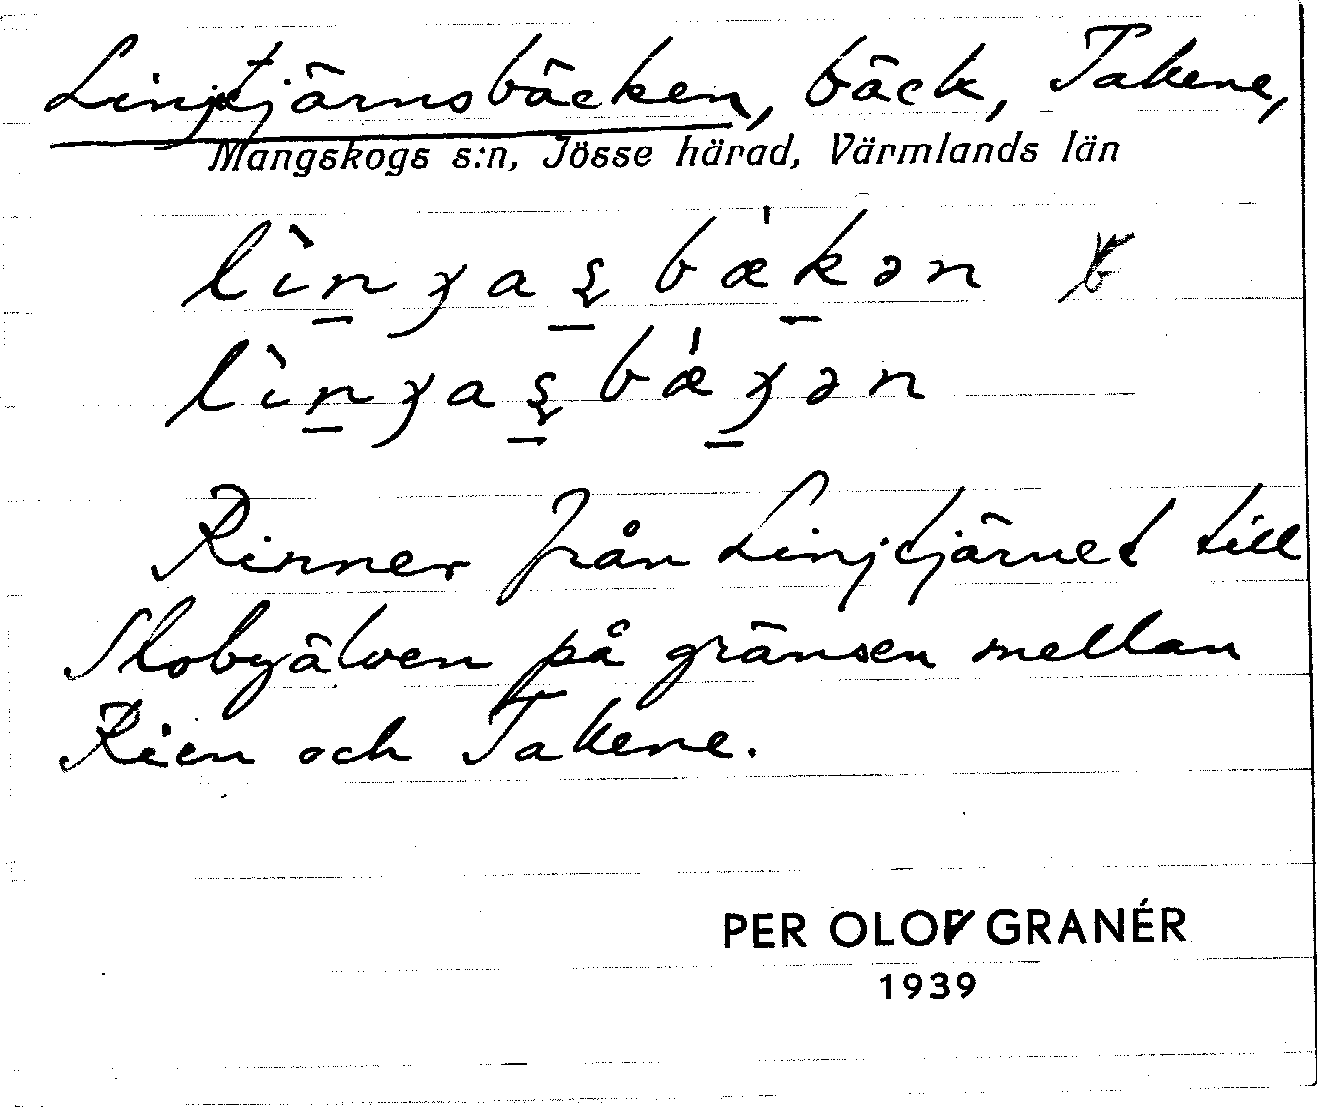 Linjtjärnsbäcken, bäck, Takene,
Mangskogs s:n, Jösse härad, Värmlands län
Rinner från Linjtjärnet till
Slobyälven på gränsen mellan
Rien och Takene.
PER OLOF GRANÉR
1939